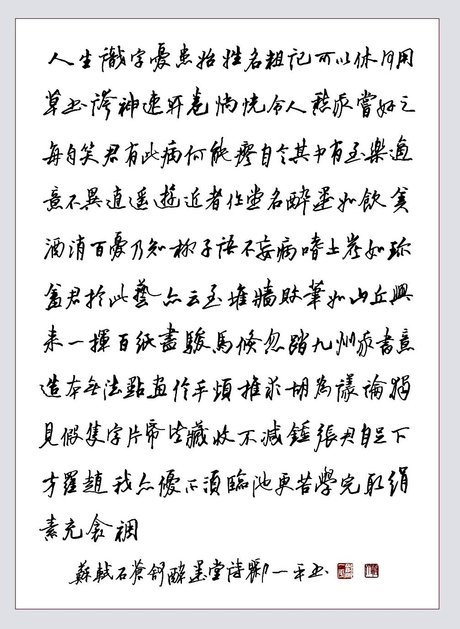 人生識字憂患始姓名粗記可以休何用
草书誇神速開卷惝怳令人愁我嘗好之
每自笑君有此病何能瘳自言其中有至樂適
意不異逍遙遊近者作堂名醉墨如飲美
酒消百憂乃知柳子語不妄病嗜土炭如珍
羞君於此藝亦云至堆牆敗筆如山丘興
來一揮百紙盡駿馬倏忽踏九州我書意
造本無法點畫信手煩推求胡為議論獨
見假隻字片紙皆藏收不減鍾張君自足下
方羅趙我亦優不須臨池更苦學完取絹
素充衾裯
蘇軾石蒼舒醉墨堂詩一平书